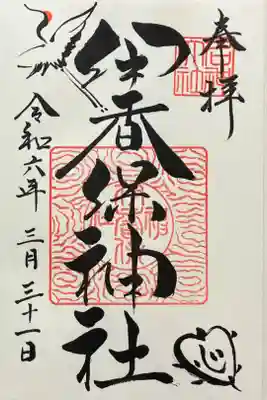 奉拝
伊香保神社
令和六年 三月三十一日